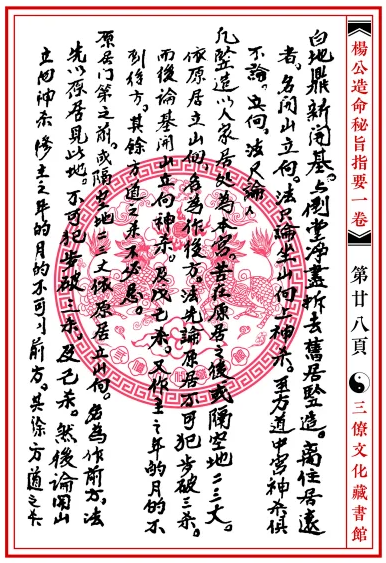 楊公造命秘旨指要一卷
第廿八頁
三僚文化藏書館
白地鼎新開基。与倒堂淨盡拆去舊居竪造。离住居遠
者。名開山立向。法只論坐山向上神杀。至方道中宮神杀俱
不論。立向。法只論
凡竪造以人家居处為本宮。若在原居之後或隔空地二三丈。
依原居立山向。名為作後方。法先論原居不可犯步破三杀。
而後論基開山立向神杀。及戊己杀。又作主之年的月的不
到後方。其餘方道之杀不必忌。
原居门第之前。或隔空地二三丈依原居立山向。名為作前方。法
先以原居見此地。不可犯步破三杀。及己杀。然後論開山
立向神杀修主之年的月的不可刂前方。其涂方道之杀